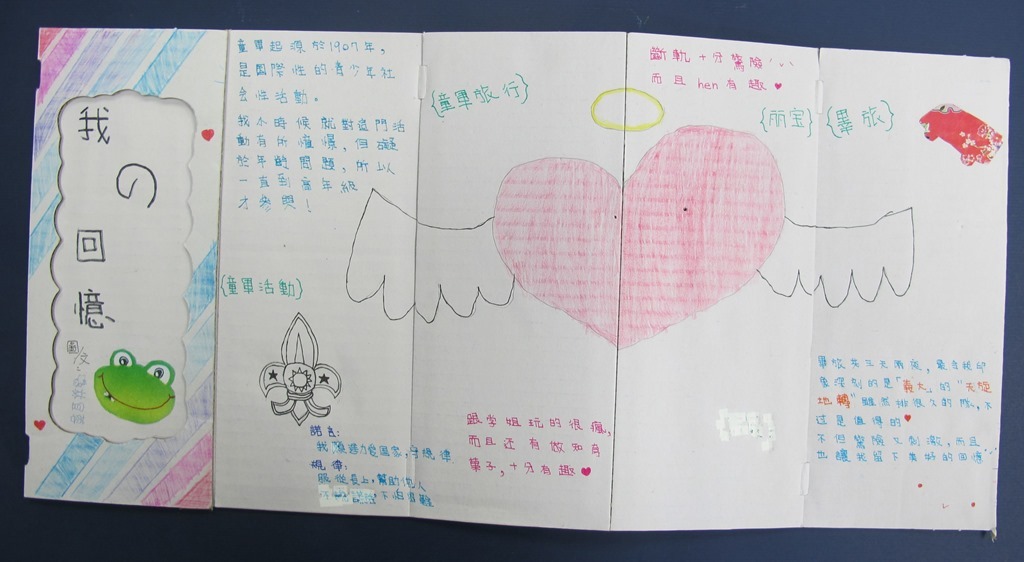 我
の
回
憶
圖
文
童軍起源於1907年,
是国際性的青少年社
会性活動。
我小時候就對這門活
動有所憧憬,但礙
於年齡問題,所以
一直到高年級
才參與!
{童軍活動}
諾言:
規律:
服從長上,幫助他人
{童軍旅行}
跟学姐玩的很瘋,
而且还有做知育
菓子,十分有趣♥
斷軌十分驚險
而且hen有趣♥
{丽宝}{畢旅}
畢旅共三天兩夜,最令我印
象深刻的是「義大」的"天旋
地轉"雖然排很久的隊,不
过是值得的♥
不但驚險又刺激,而且
也讓我留下美好的回憶